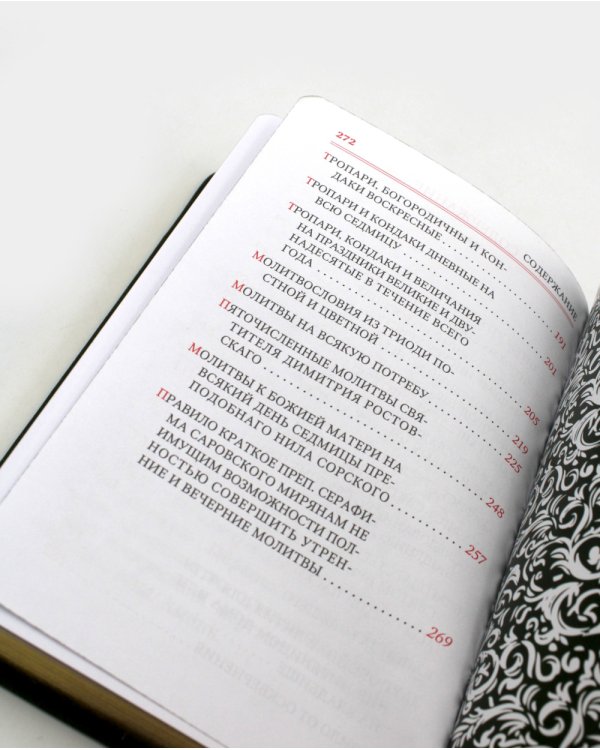 272
СОДЕРЖАНИЕ
ТРОПАРИ, БОГОРОДИЧНЫ И КОН-
ДАКИ ВОСКРЕСНЫЕ 191
ТРОПАРИ И КОНДАКИ ДНЕВНЫЕ НА
ВСЮ СЕДМИЦУ 201
ТРОПАРИ, КОНДАКИ И ВЕЛИЧАНИЯ
НА ПРАЗДНИКИ ВЕЛИКИЕ И ДВУ-
НАДЕСЯТЫЕ В ТЕЧЕНИЕ ВСЕГО
ГОДА 205
МОЛИТВОСЛОВИЯ ИЗ ТРИОДИ ПО-
СТНОЙ И ЦВЕТНОЙ 219
МОЛИТВЫ НА ВСЯКУЮ ПОТРЕБУ 225
ПЯТОЧИСЛЕННЫЕ МОЛИТВЫ СВЯ-
ТИТЕЛЯ ДИМИТРИЯ РОСТОВ-
СКАГО 248
МОЛИТВЫ К БОЖИЕЙ МАТЕРИ НА
ВСЯКИЙ ДЕНЬ СЕДМИЦЫ ПРЕ-
ПОДОБНАГО НИЛА СОРСКОГО 257
ПРАВИЛО КРАТКОЕ ПРЕП. СЕРАФИ-
МА САРОВСКОГО МИРЯНАМ НЕ
ИМУЩИМ ВОЗМОЖНОСТИ ПОЛ-
НОСТЬЮ СОВЕРШИТЬ УТРЕН-
НИЕ И ВЕЧЕРНИЕ МОЛИТВЫ 269